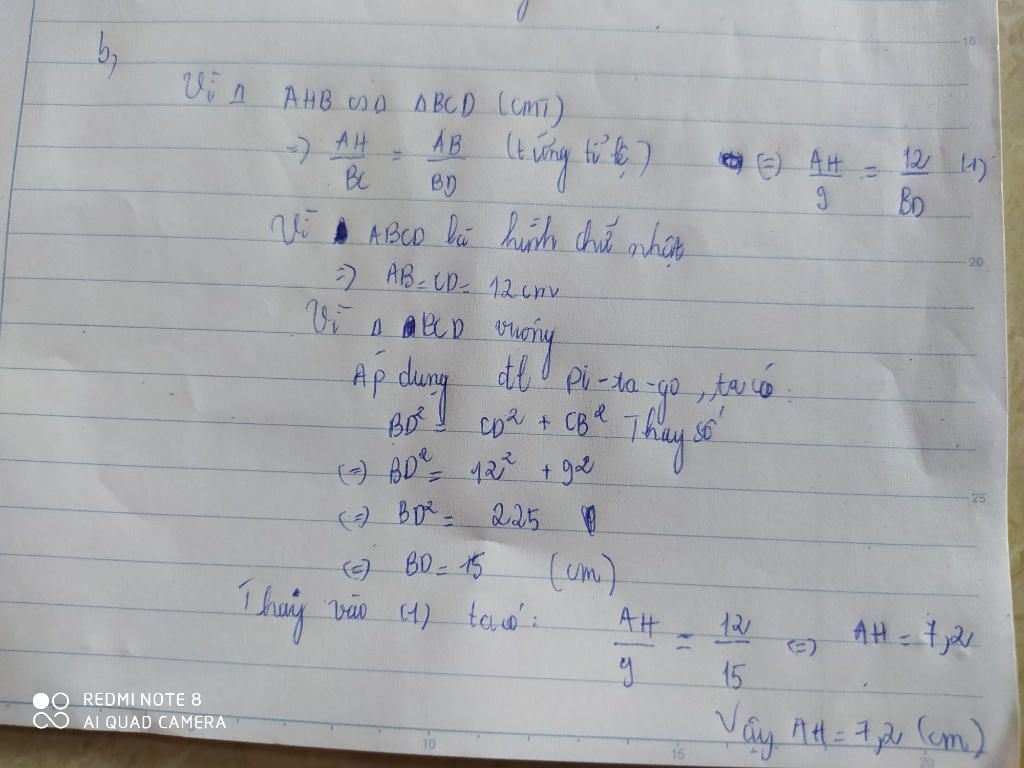 b,
Vì Δ AHB ∽ Δ BCD (cmt)
=> AH/BC = AB/BD (tứng tỉ lệ) <=> AH/9 = 12/BD (1)
Vì ABCD là hình chữ nhật
=> AB = CD = 12 cm
Vì Δ BCD vuông
Áp dụng đl pi-ta-go, ta có.
BD² = CD² + CB² Thay số
<=> BD² = 12² + 9²
<=> BD² = 225
<=> BD = 15 (cm)
Thay vào (1) ta có: AH/9 = 12/15 <=> AH = 7,2
Vậy AH = 7,2 (cm)
REDMI NOTE 8
AI QUAD CAMERA
15
20
25
10
15
20